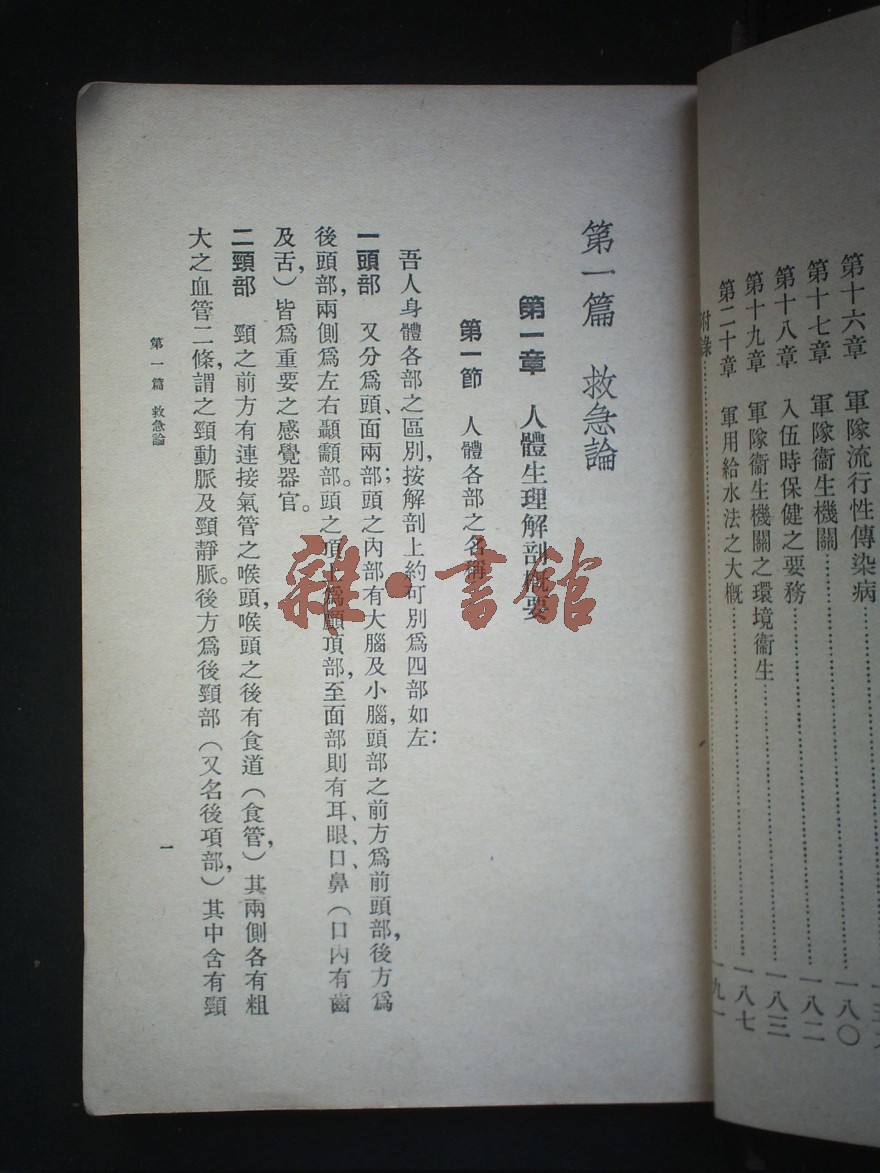 第十六章 軍隊流行性傳染病………一八〇
第十七章 軍隊衞生機關………一八二
第十八章 入伍時保健之要務………一八三
第十九章 軍隊衞生機關之環境衞生………一八七
第二十章 軍用給水法之大概………一九一
附錄………
第一篇 救急論
第一章 人體生理解剖概要
第一節 人體各部之名稱
吾人身體各部之區別，按解剖上約可別爲四部如左：
一頭部 又分爲頭、面兩部；頭之內部有大腦及小腦，頭部之前方爲前頭部，後方爲
後頭部，兩側爲左右顳顬部。頭之頂上爲顱頂部，至面部則有耳、眼、口、鼻（口內有齒
及舌，）皆爲重要之感覺器官。
二頸部 頸之前方有連接氣管之喉頭，喉頭之後有食道（食管，）其兩側各有粗
大之血管二條，謂之頸動脈及頸靜脈。後方爲後頸部（又名後項部，）其中含有頸
第一篇 救急論
一
雜·書館